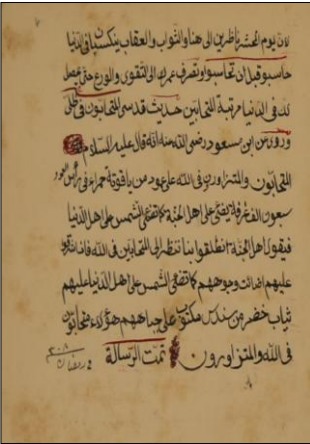 لان يوم الحشر ناظرين الى هنا والثواب والعقاب ينكسبا في الدنيا
حاسبو قبل ان تحاسبوا وتصرف عمرك الى التقوى والورع حتى يحصل
لك في الدنيا مرتبة المتحابين حديث قدسي المتحابون في ظلي
وروي عن ابن مسعود رضى الله عنه انه قال عليه السلام
المتحابون والمتزاورون في الله على عمود من ياقوتة حمراء في رأس العمود
سبعون الف غرفة يضئ على اهل الجنة كما تضئ الشمس على اهل الدنيا
فيقول اهل الجنة انطلقوا بنا ننظر الى المتحابين في الله فاذا
عليهم اضائت وجوههم كما تضئ الشمس على اهل الدنيا عليهم
ثياب خضر من سندس مكتوب على جباههم هؤلاء متحابون
في الله والمتزاورون تمت الرسالة
رمضان